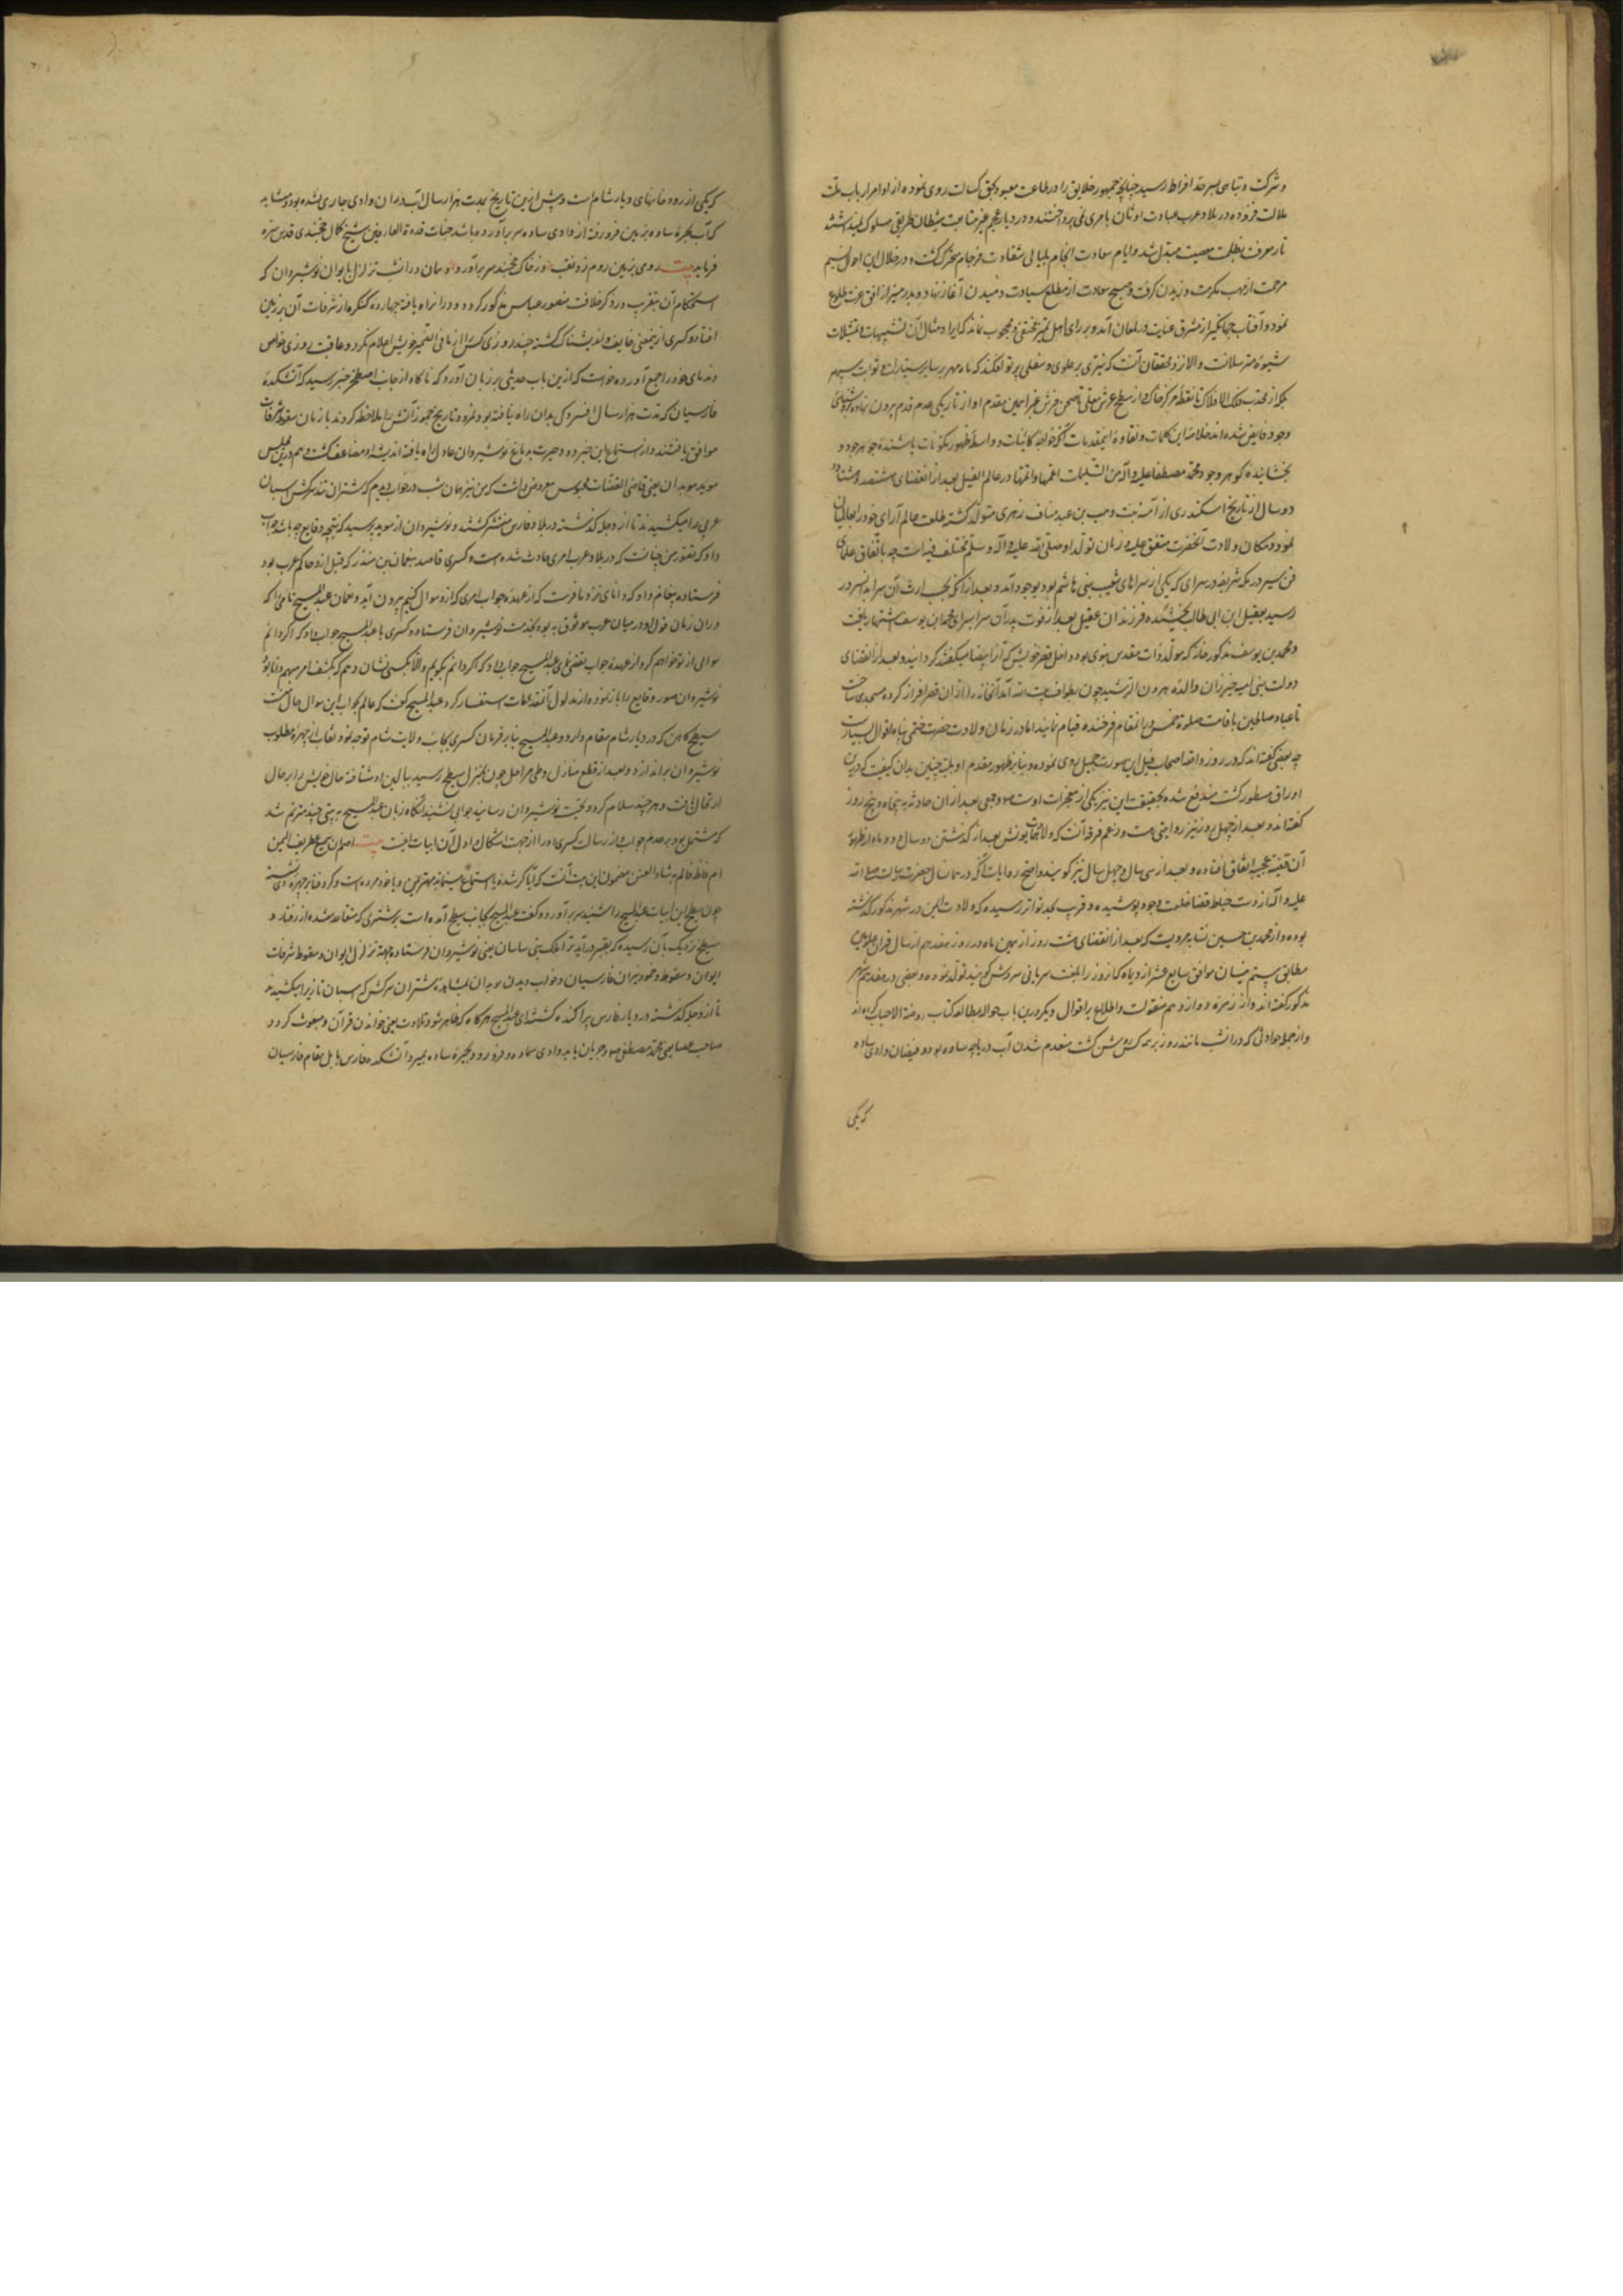 و شرکت و تباهی بسرحد افراط رسید چنانچه جمهور خلایق را در طاعت معبود بحق کسالت روی نموده از اوامر ارباب ملت
ملالت فزوده در بلاد عرب عبادت اوثان بامری نمی پرداختند و در دیار عجم غیر متابعت شیطان طریقی مسلوک نمیداشتند
تا معرفت بظلمت معصیت مبدل شد و ایام سعادت انجام بلیالی شقاوت فرجام منجر گشت و در خلال این احوال نسیم
مرحمت از مهب مکرمت وزیدن گرفت و صبح سعادت از مطلع سیادت دمیدن آغاز نهاد و بدر منیر از افق عزت طلوع
نمود و آفتاب جهانگیر از مشرق عنایت در لمعان آمد و بر رای اهل تمیز مختفی و محجوب نماند که ایراد مثال آن تشبیهات و تمثیلات
شیوه مترسلانست والا نزد محققان آنست که نیری بر علوی و سفلی پرتو افکند که ماه و مهر بر سایر سیارات و ثوابت سپهر
بلکه از محدب فلک الافلاک تا نقطه مرکز خاک و از سطح عرش معلی تا صحن فرش غبرا بیمن مقدم او از تاریکی عدم قدم برون نهاده بروشنائی
وجود فایض شده اند خلاصه این کلمات و نقاوه اینمقدمات آنکه خواجه کاینات و واسطه ظهور مکونات باشنده جوهر جود و
بخشانده گوهر وجود محمد مصطفا علیه و آله من التسلیمات اعمها و اتمها در عالم الفیل بعد از انقضای ششصد و هشتاد و
دو سال از تاریخ اسکندری از آمنه بنت وهب بن عبد مناف زهری متولد گشته طلعت عالم آرای خود را بعالمیان
نمود و مکان ولادت آنحضرت متفق علیه و زمان تولد او صلی الله علیه و آله و سلم مختلف فیه است چه باتفاق علمای
فن سیر در مکه شریفه در سرای که یکی از سراهای شعب بنی هاشم بود بوجود آمد و بعد از آنکه بحسب ارث آن سرا بدانسرور
رسید بعقیل ابن ابی طالب بخشیده فرزندان عقیل بعد از فوت پدر آن سرا بسرای محمد ابن یوسف اشتهار یافت
و محمد بن یوسف مذکور خانه که مولد ذات مقدس نبوی بود داخل قصر خویش که آنرا بیضا میگفتند گردانید و بعد از انقضای
دولت بنی امیه خیزران والده هرون الرشید چون بطواف بیت الله آمد آنخانه را از ان قصر افراز کرده مسجدی ساخت
تا عباد صالحین باقامت صلوة خمس در انمقام فرخنده قیام نمایند اما در زمان ولادت حضرت ختمی پناه اقوال بسیارست
چه بعضی گفته اند که در روز واقعه اصحاب فیل این صورت جمیل روی نموده و بنابر ظهور مقدم او بلیه چنین بدان کیفیت که درین
اوراق مسطور گشت مندفع شده بحقیقت این نیز یکی از معجزات اوست و جمعی بعد از ان حادثه به پنجاه و پنج روز
گفته اند و بعد از چهل روز نیز روایتی هست و زعم فرقه آنکه ولادت همایونش بعد از گذشتن دو سال و دو ماه از ظهور
آن قضیه عجیبه اتفاق افتاده و بعد از سی سال و چهل سال نیز گویند و اصح روایات آنکه در همان سال حضرت رسالت صلی الله
علیه و آله از دست خیاط قضا خلعت وجود پوشیده و قریب بحد تواتر رسیده که ولادت ... در شهر مذکور گذشته
بوده و از محمد بن حسین ... مرویست که بعد از انقضای هشت روز از همین ماه در روز هفدهم از سال قران علویین
مطابق بیستم نیسان موافق سابع عشر از دیماه که آنروز را بلغت سریانی سروش گویند تولد نموده و بعضی در هفدهم شهر
مذکور گفته اند و از زمره دوازدهم منقولست و اطلاع بر اقوال دیگر درین باب حواله بمطالعه کتاب روضة الاحباب کرده اند
و از جمله حوادثی که در انشب مانند روز بر همه کس روشن گشت منعدم شدن آب دریاچه ساوه بود و فیضان وادی سماوه
که یکی
که یکی از رودخانهای دیار شام است و پیش ازین تاریخ بمدت هزار سال آب در ان وادی جاری نشده بود و مشابه
که آب بحیره ساوه بزمین فرو رفته از وادی سماوه سر برآورده باشد جنانچه قدوة العارفین شیخ کمال خجندی قدس سره
فرماید بیت روی بزمین روم زد و نقب وز خاک خجند سر برآورد و همان در انشب تزلزل بایوان نوشیروان که
استحکام آن بتقریب در ذکر خلافت منصور عباسی مذکور گردد در انراه یافته چهارده کنگره از شرفات آن بر زمین
افتاد و کسری ازینمعنی خایف و اندیشناک گشته چند روزی کس را از ما فی الضمیر خویش اعلام نکرد و عاقبت روزی خواص
و ندمای خود را جمع آورده خواست که ازین باب حدیثی بر زبان آورد که ناگاه از جانب اصطخر خبر رسید که آتشکده
فارسیان که مدت هزار سال افسردگی بدان راه نیافته بود بمرد و تاریخ خمود آتش را ملاحظه کردند با زمان سقوط شرفات
موافق یافتند و از استماع این خبر دود حیرت بدماغ نوشیروان عادل راه یافته اندیشه او مضاعف گشت و هم درین مجلس
موبد موبدان یعنی قاضی القضات مجوس معروض داشت که من نیز همان شب در خواب دیدم که شتران تند سرکش اسبان
عربی را میکشیدند تا از دجله گذشته در بلاد فارس منتشر گشتند و نوشیروان از موبد پرسید که نتیجه وقایع چه باشد جواب
داد که تصور من چنانست که در بلاد عرب امری حادث شده است و کسری قاصد بنعمان بن منذر که قبل ازو حاکم عرب بود
فرستاده پیغام داد که دانای نزد ما فرست که از عهده جواب امری که ازو سوال کنیم بیرون آید و نعمان عبد المسیح نامی را که
در ان زمان قول او در میان عرب موثوق به بود بخدمت نوشیروان فرستاد و کسری با عبد المسیح جواب داد که اگر دانم
سوالی از تو خواهم کرد از عهده جواب تفصی نمای عبد المسیح جواب داد که اگر دانم بگویم والا بکسی نشان دهم که بکشف امر مبهم دانا بود
نوشیروان صور وقایع را باز نموده از مدلول آنمقدمات استفسار کرد عبد المسیح گفت که عالم بجواب این سوال خال منست
سطیح کاهن که در دیار شام مقام دارد و عبد المسیح بنابر فرمان کسری بجانب ولایت شام توجه نمود تا نقاب از چهره مطلوب
نوشیروان براندازد و بعد از قطع منازل و طی مراحل چون بمنزل سطیح رسید ببالین او شتافته خال خویش را بر حال
ارتحال یافت و هر چند سلام کرد و تحیت نوشیروان رسانید جوابی نشنید آنگاه زبان عبد المسیح به بیتی چند مترنم شد
که مشتمل بود بر عدم جواب از رسالت کسری او را از جهت اشکال و اول آن ابیات اینست بیت اصم ام یسمع غطریف الیمن
ام فاظ فازلم به شاو العنن مضمون این بیت آنست که آیا کر شده یا استماع مینماید مهتر یمن و یا خود مرده است و گرد فنا بر چهره وی نشسته
چون سطیح این ابیات عبد المسیح را شنید سر برآورد و گفت عبد المسیح بجانب سطیح آمده است بر شتری که متقاعد شده از رفتار و
سطیح نزدیک بآن رسیده که بقبر درآید ترا ملک بنی ساسان یعنی نوشیروان فرستاده بجهة تزلزل ایوان و سقوط شرفات
ایوان و سقوط و خمود نیران فارسیان و خواب دیدن موبدان مشاهده شتران سرکش که اسبان تازی را میکشیدند
تا از دجله گذشته در دیار فارس پراکنده گشتند ای عبد المسیح هرگاه که ظاهر شود تلاوت یعنی خواندن قرآن و مبعوث گردد
صاحب عصا یعنی محمد مصطفی ص و جریان یابد وادی سماوه و فرو رود بحیره ساوه بمیرد آتشکده فارس بابل مقام فارسیان